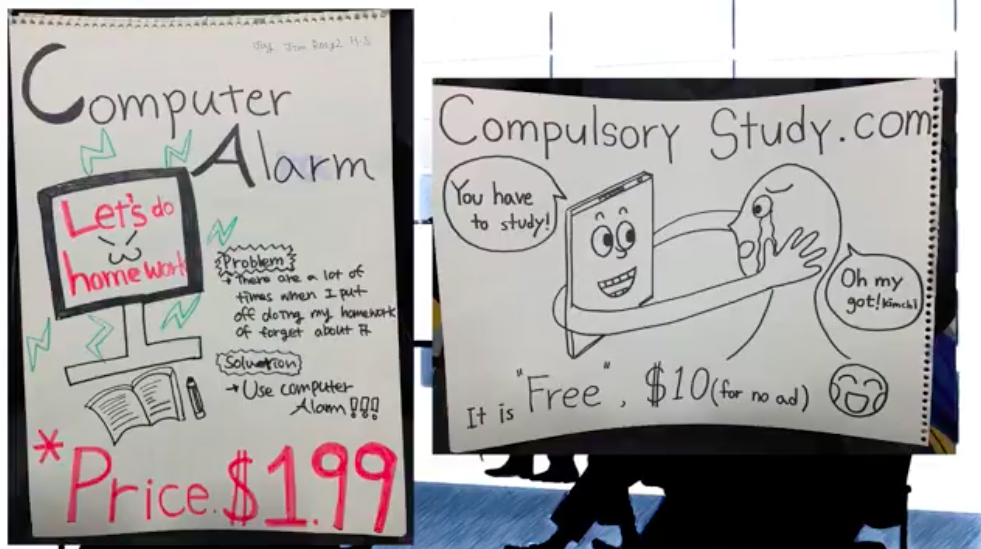 Computer
Alarm
Let's do
homework
Problem
→ There are a lot of
times when I put
off doing my homework
of forget about it
Solution
→ Use computer
Alarm!!!
*Price.$1.99
Compulsory Study.com
You have
to study!
Oh my
got! kimchi
It is "Free", $10 (for no ad)